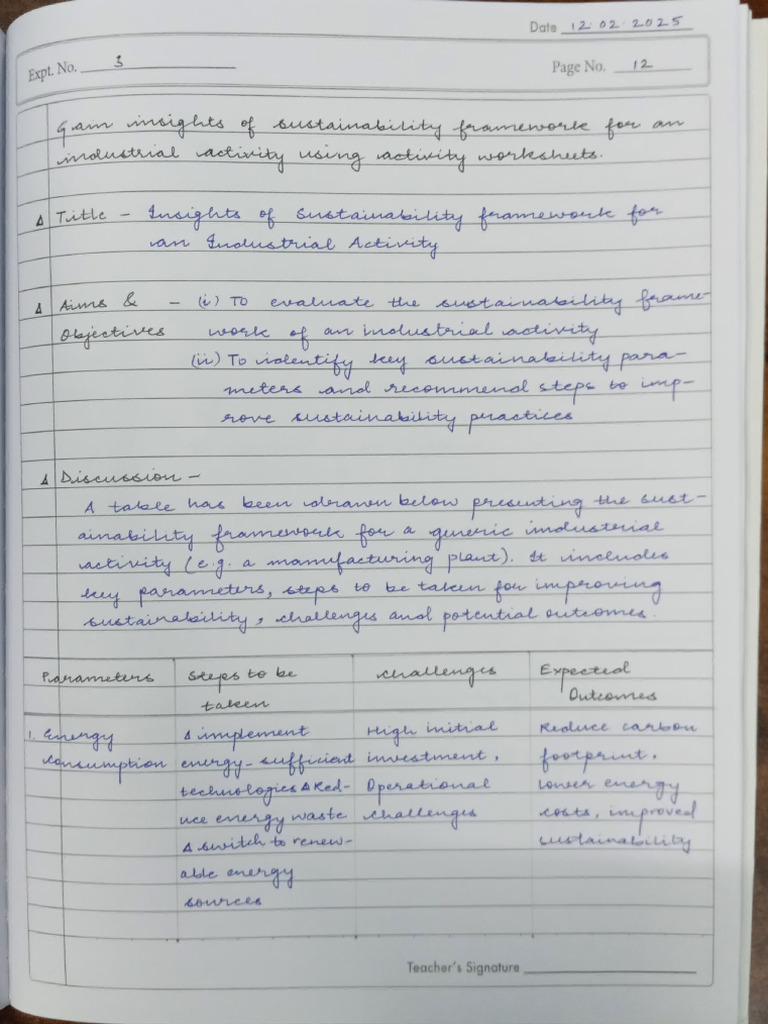 Date 12.02.2025
Expt. No. 3
Page No. 12
Gain insights of sustainability framework for an
industrial activity using activity worksheets.
Δ Title - Insights of Sustainability framework for
an Industrial Activity
Δ Aims & - (i) To evaluate the sustainability frame-
Objectives work of an industrial activity
(ii) To identify key sustainability para-
meters and recommend steps to imp-
rove sustainability practices
Δ Discussion -
A table has been drawn below presenting the sust-
ainability framework for a generic industrial
activity (e.g. a manufacturing plant). It includes
key parameters, steps to be taken for improving
sustainability, challenges and potential outcomes.
Parameters
Steps to be
taken
Challenges
Expected
Outcomes
1. Energy
consumption
Δ implement
energy-sufficient
technologies Δ Red-
uce energy waste
Δ switch to renew-
able energy
sources
High initial
investment,
Operational
challenges
Reduce carbon
footprint,
lower energy
costs, improved
sustainability
Teacher's Signature